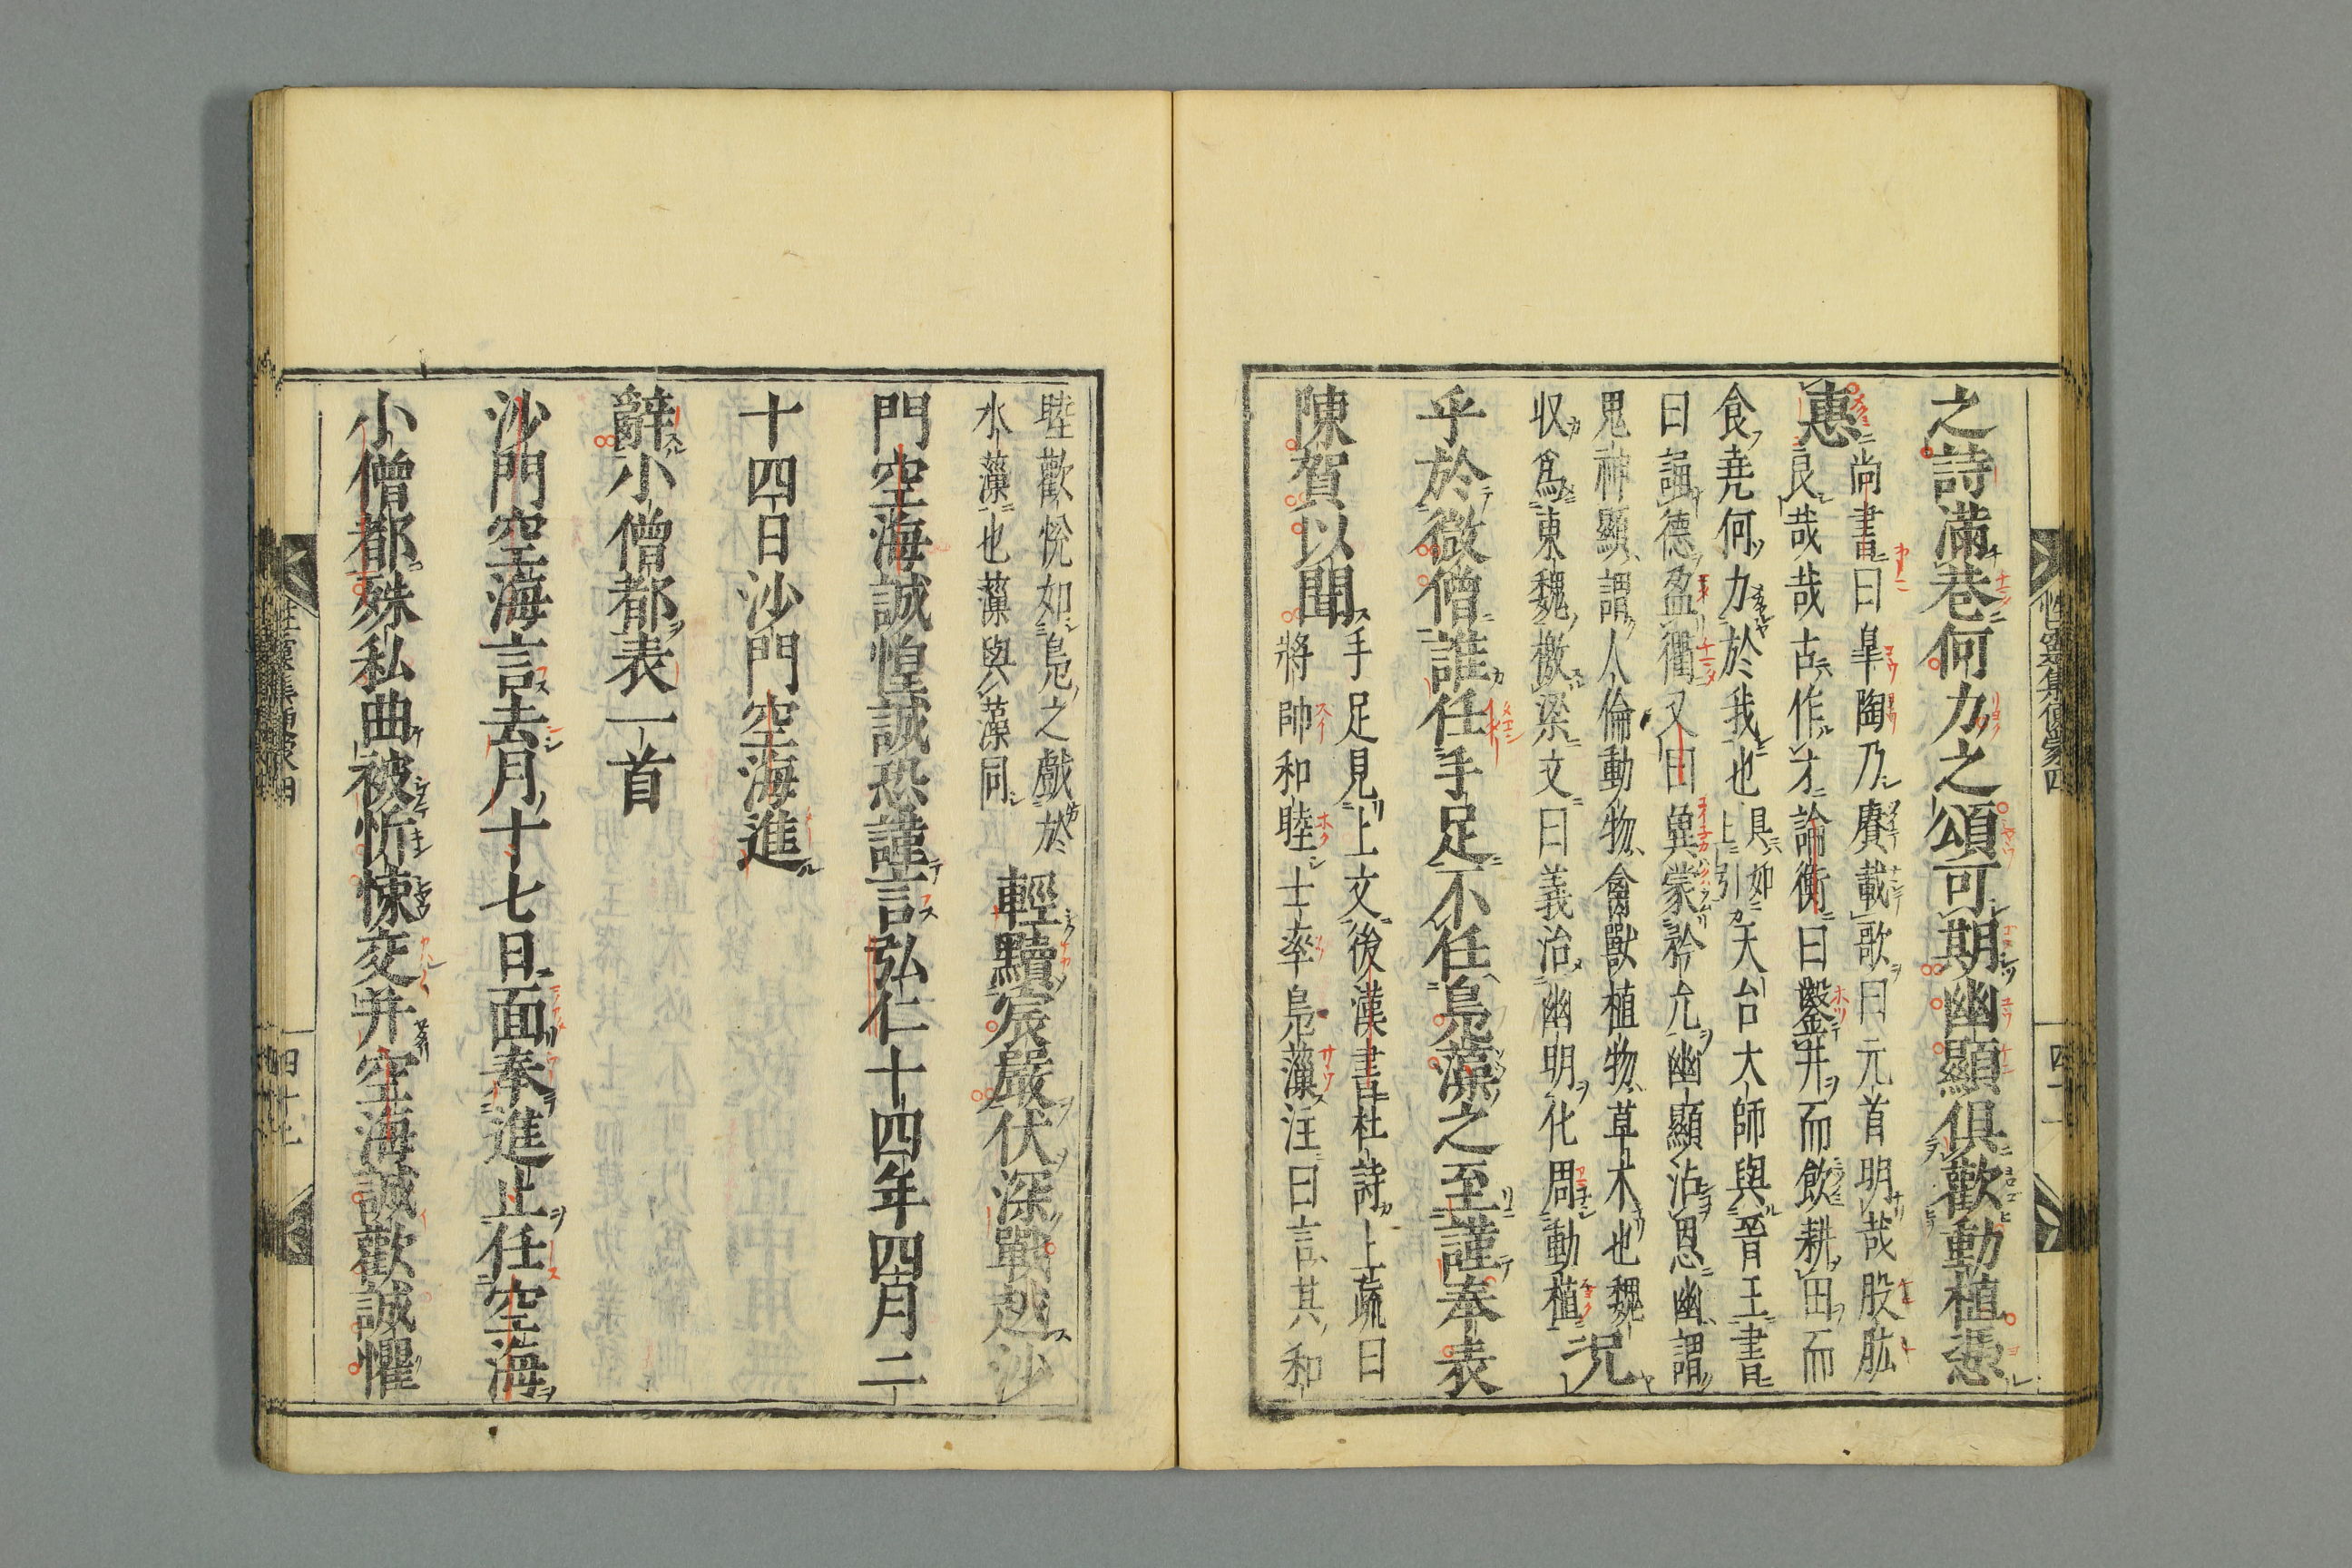 之詩滿巷何力之頌可期幽顯俱歡動植慿
惠
尚書曰皐陶乃賡載歌曰元首明哉股肱
良哉哉古作才論衡曰鑿井而飲耕田而
食尭何力於我也
具如
上引
天台大師與晉王書
曰謳德盈衢又曰冀蒙矜允幽顯沾恩幽謂
鬼神顯謂人倫動物禽獸植物草木也魏
収爲東魏檄梁文曰義治幽明化周動植
况
乎於微僧誰任手足不任鳧藻之至謹奉表
陳賀以聞
手足見上文後漢書杜詩上疏曰
將帥和睦士率鳧藻注曰言其和
睦歡悅如鳧之戲於
水藻也藻與藻同
輕黷宸嚴伏深戰越沙
門空海誠惶誠恐謹言弘仁十四年四月二
十四日沙門空海進
辭小僧都表一首
沙門空海言去月十七日面奉進止任空海
小僧都殊私曲被忻悚交并空海誠歡誠懼
性靈集便蒙四
四十一